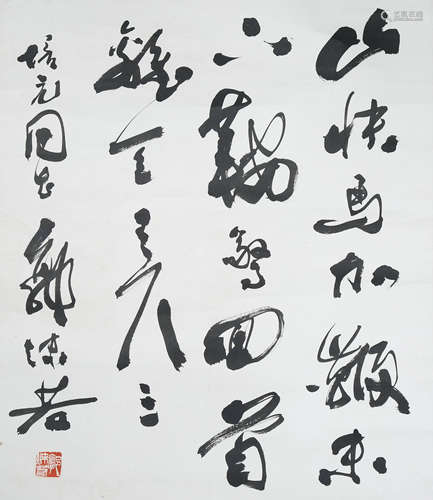 山快马加鞭未
下鞍惊回首
离天三尺三
培元同志 郭沫若